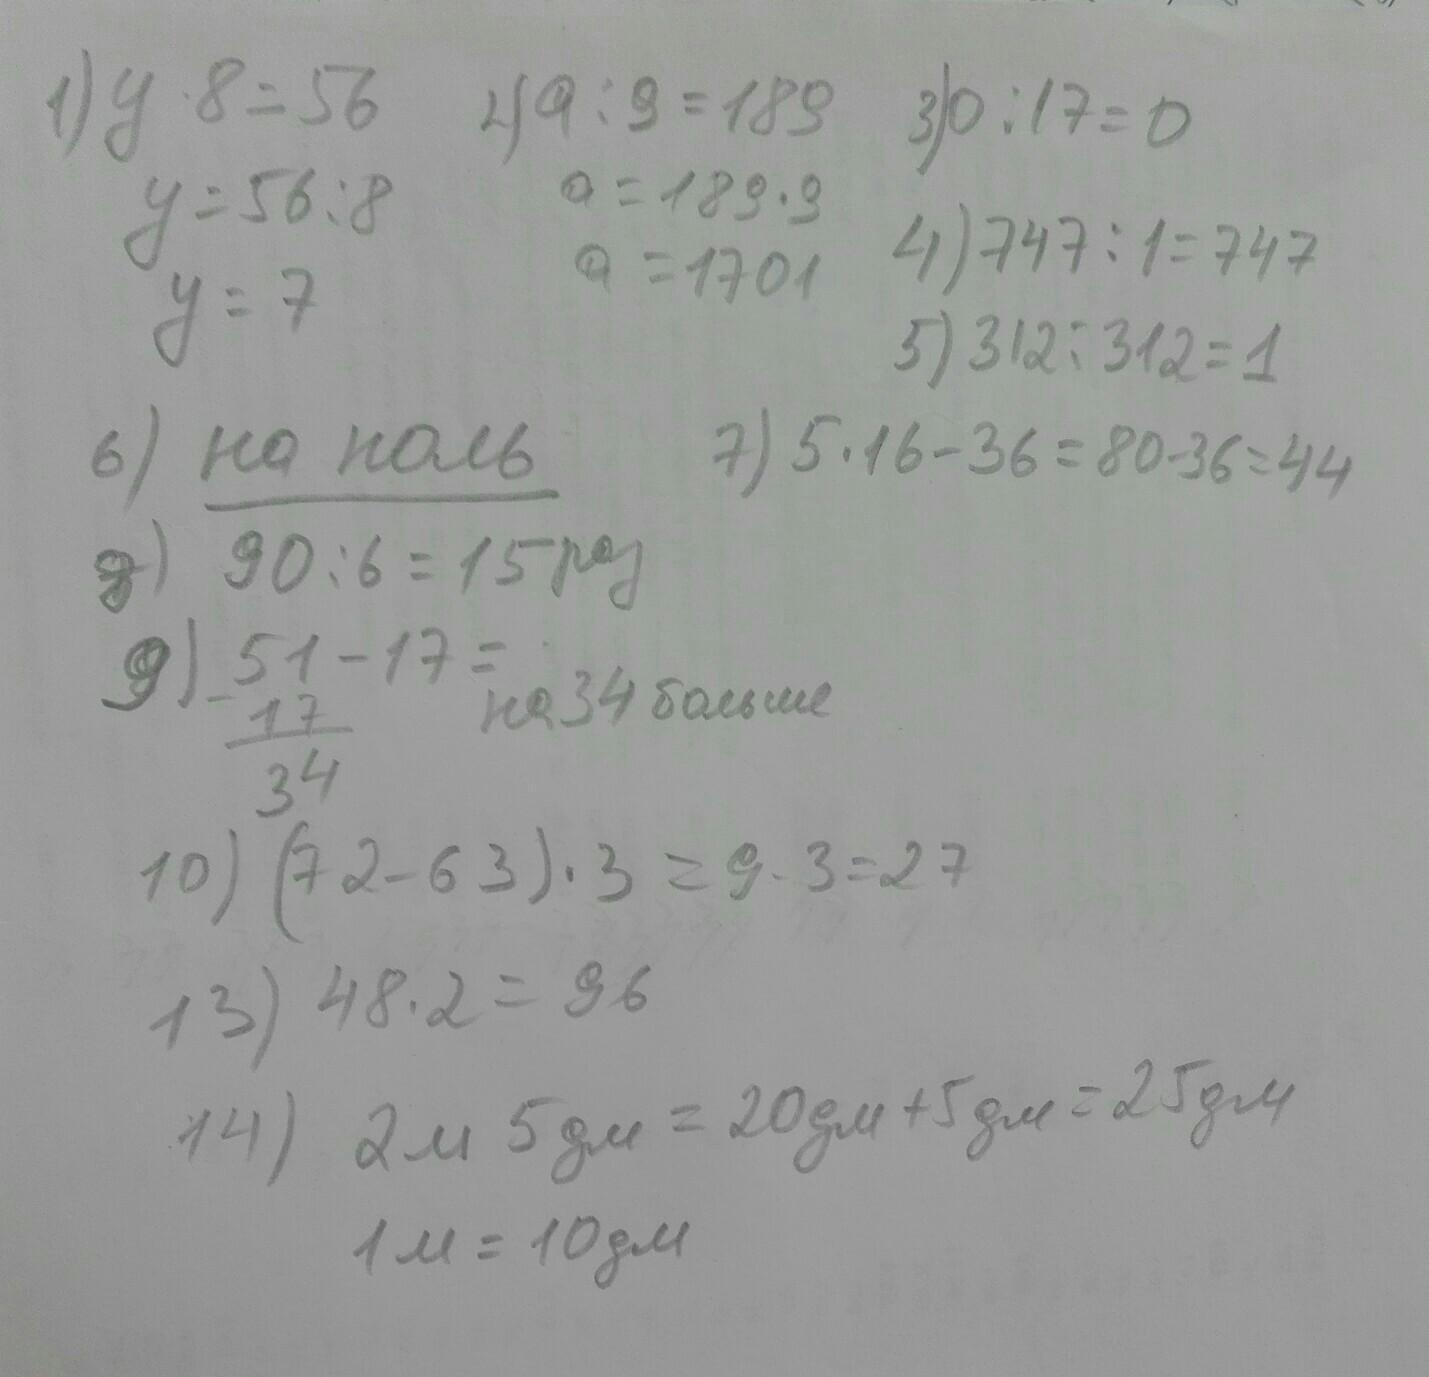 1) y · 8 = 56
y = 56 : 8
y = 7
2) a : 9 = 189
a = 189 · 9
a = 1701
3) 0 : 17 = 0
4) 747 : 1 = 747
5) 312 : 312 = 1
6) на ноль
7) 5 · 16 - 36 = 80 - 36 = 44
8) 90 : 6 = 15 раз
9) 51 - 17 =
- 17
34
на 34 больше
10) (72 - 63) · 3 = 9 · 3 = 27
13) 48 · 2 = 96
14) 2м 5дм = 20дм + 5дм = 25дм
1м = 10дм